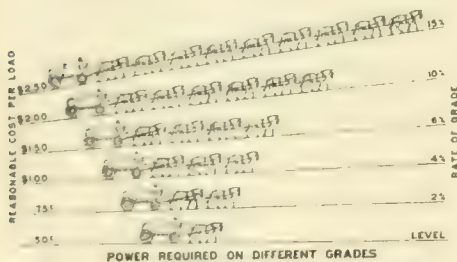 REASONABLE COST PER LOAD
$2.50
$2.00
$1.50
$1.00
.75¢
.50¢
15%
10%
6%
4%
2%
LEVEL
RATE OF GRADE
POWER REQUIRED ON DIFFERENT GRADES